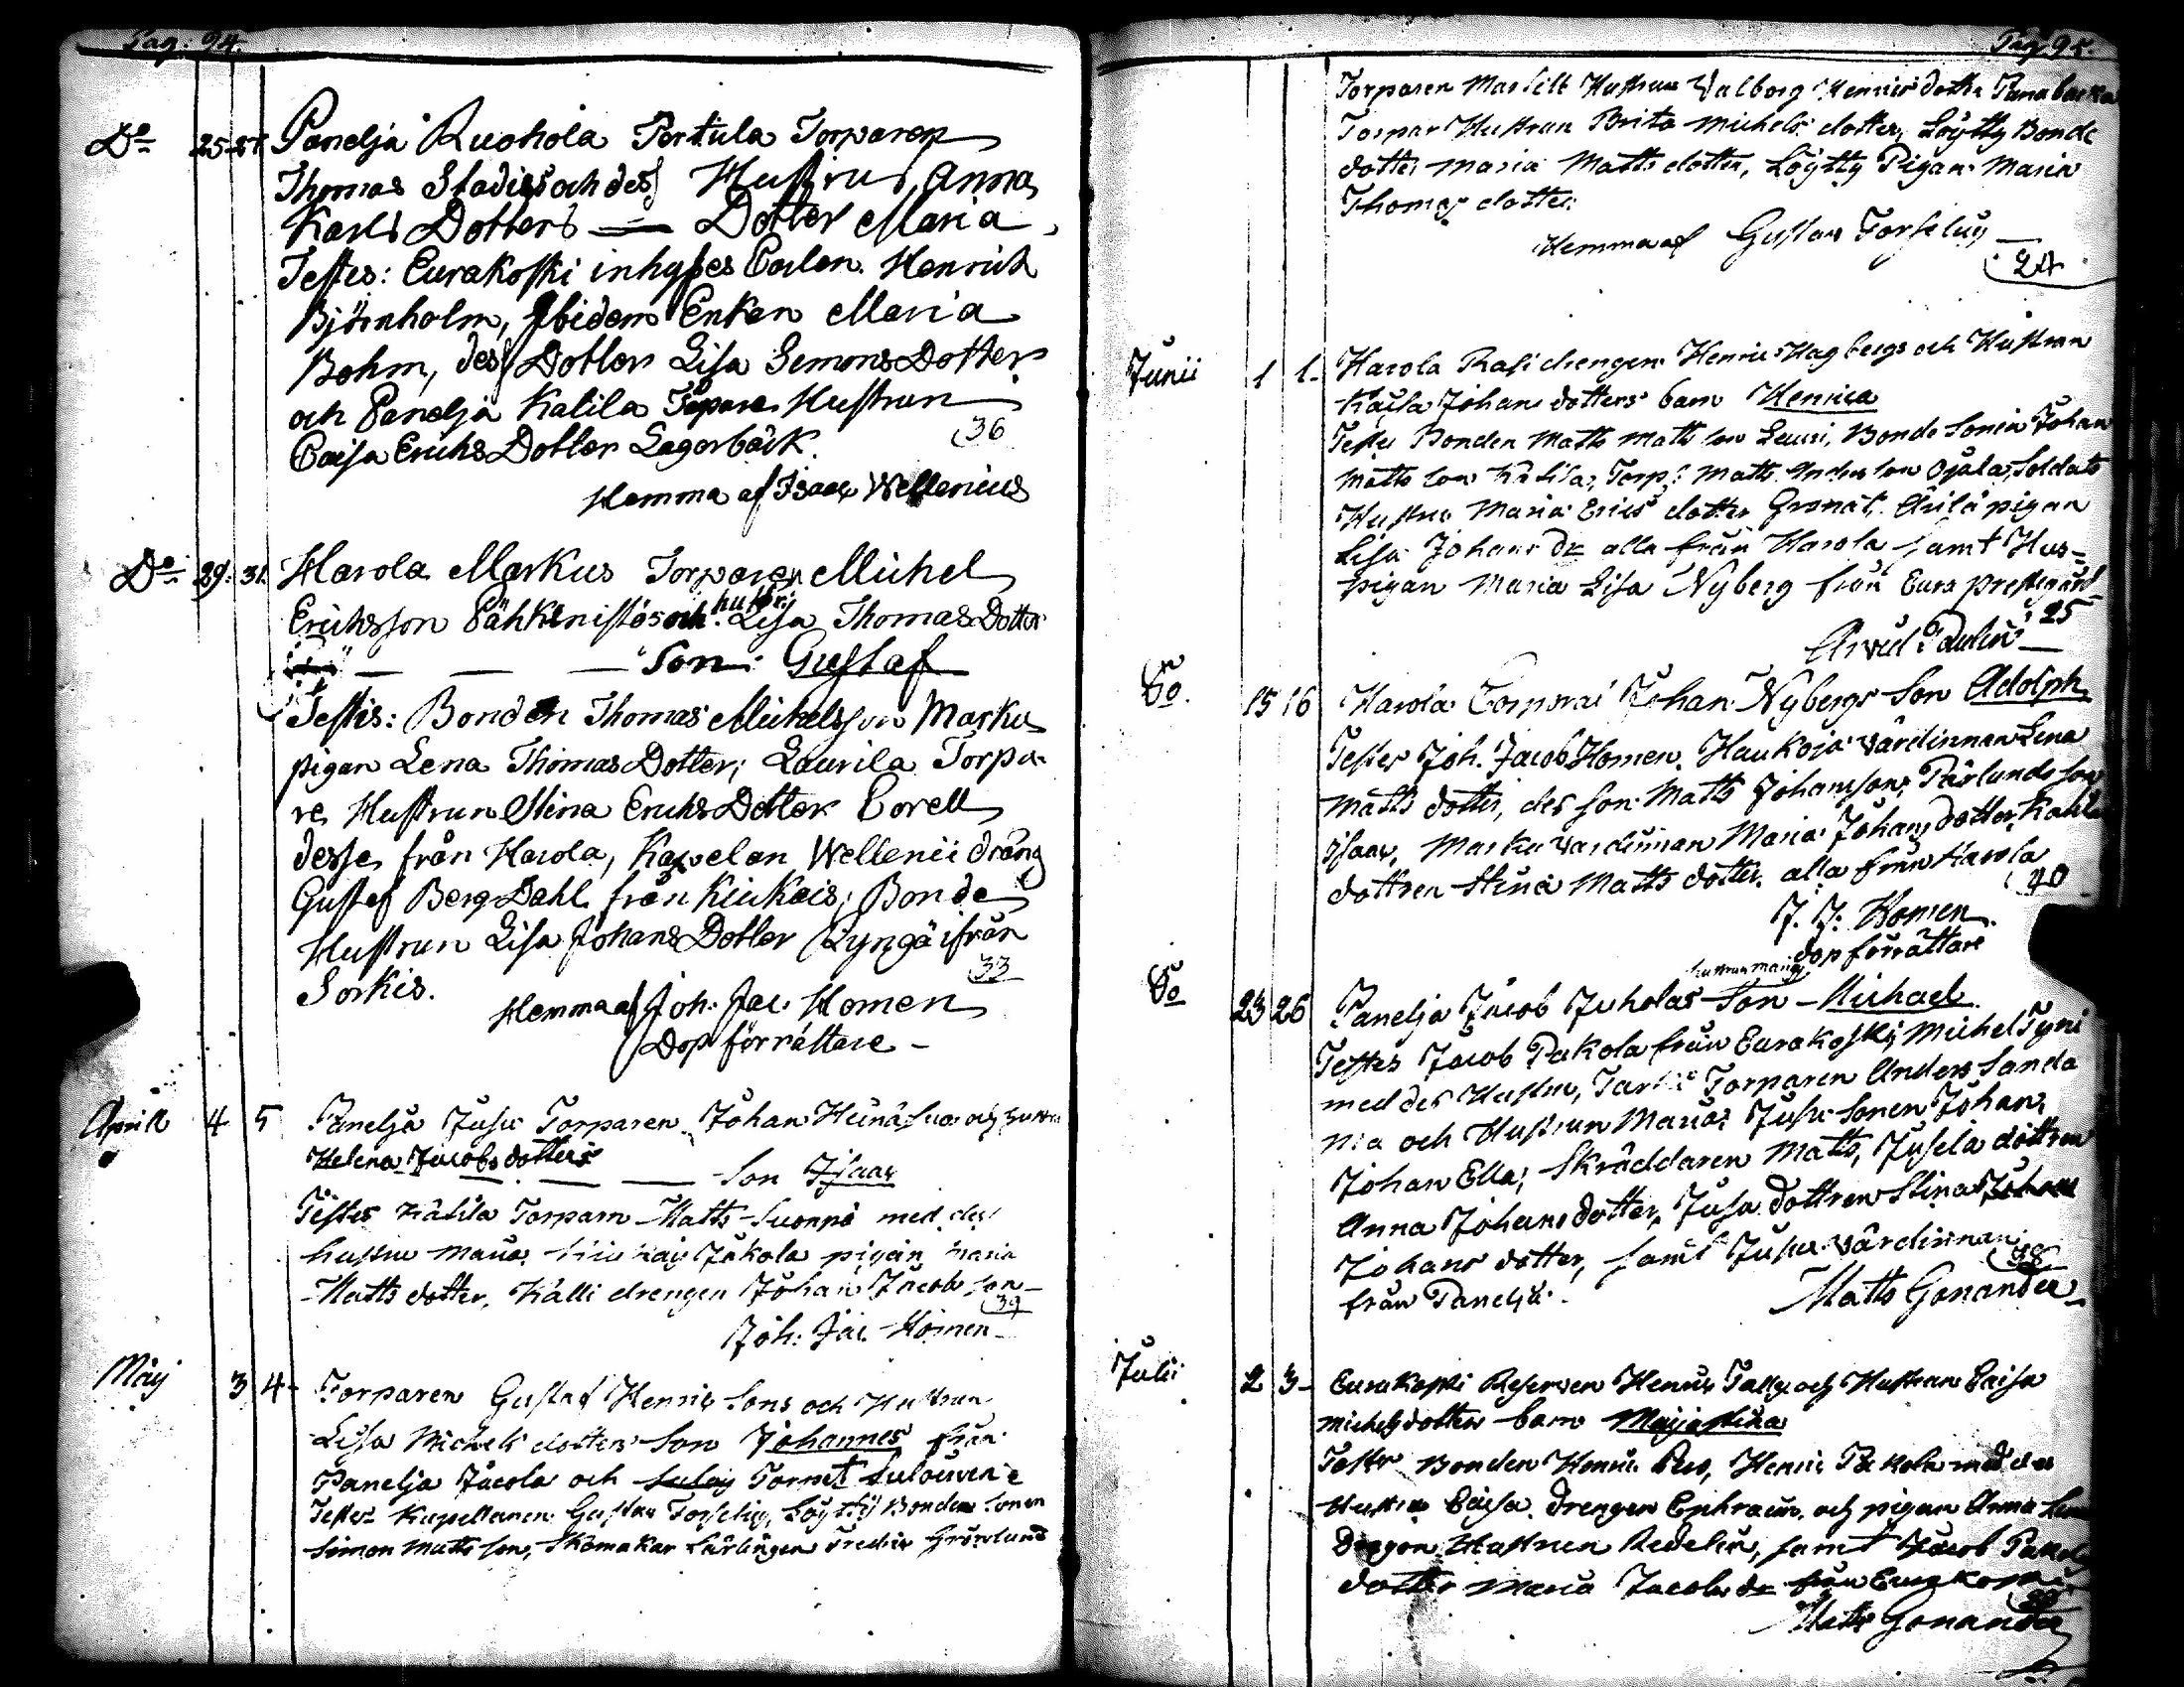 Pag: 94.
Do 25 27 Panelja Ruohola Pertula Torparen
Thomas Stadigs och des Hustrus Anna
Karls Dotters — Dotter Maria
Testes: Eurakoski inhyses Carlen Henrich
Björnholm, Ibidem Enkan Maria
Bohm, des Dotter Lisa Simons Dotter
och Panelja Katila Torpare Hustrun
Caisa Erichs Dotter Lagerbäck.
36
Hemma af Isaac Wellenius
Do 29. 31. Harola Markus Torparen Michel
hustrus
Erichsson Pähkenistös och Lisa Thomas Dotter
— — — Son: Gustaf
Testis: Bonden Thomas Michelsson Marku
pigan Lena Thomas Dotter; Laurila Torpa-
re Hustrun Stina Erichs Dotter Corell
desse från Harola, Kapelan Wellenii dräng
Gustaf Berg Dahl från Kiukais; Bonde
Hustrun Lisa Johans Dotter Lyngä ifrån
Sorkis.
33
Hemma af Joh: Jac: Homen
Dop förrättare —
Aprill 4 5 Panelja Jusu Torparen Johan Heinäsuo och hustru
Helena Jacobs dotters
— — — Son Isaac
Testes Kätila Torparn Matts Suonpä med des
hustru Maria Jakola pigan Maria
Matts dotter, Källi drengen Johan Jacobs son —
39
Joh: Jac. Homen —
Maij 3 4 - Torparen Gustaf Henrics Sons och Hustrun
Lisa Michels dotters Son Johannes från
Panelja Jacola och Torpet
Testes Kapellanen Gustav Forselius, Löytty Bonde sonen
Simon Matts son, Skomakar Lärlingen Grönlund
Pag 95.
Torparen Hustrun Valborg Henrics dotter
Torpar Hustrun Brita Michels dotter, Löytty Bonde
dotter Maria Matts dotter, Löytty Pigan Maria
Thomas dotter.
Hemma af Gustav Forselius
24
Junii 1 1. Harola Rasi drengen Henric Hagbergs och Hustrun
Kaisa Johans dotters barn Henrica
Testes Bonden Matts Matts son Lauri, Bonde Sonen Johan
Matts son Kätila, Torp. Matts Anders son Ojala, Soldats
Hustru Maria Erics dotter Granat, pigan
Lisa Johans Dr alla från Harola samt Hus-
pigan Maria Lisa Nyberg från Eura prestegård
25
Arvid Paulin —
Do. 15 16 Harola Corporal Johan Nybergs Son Adolph
Testes Joh. Jacob Homen, Haukoja värdinnan Lena
Matts dotter, des son Matts Johansson, Pärlunds son
Isaac, Marku värdinnan Maria Johans dotter, Katila
dottren Stina Matts dotter. alla från Harola
40
J. J. Homen
dop förrättare
hustrun Marias
Do 23 26 Panelja Jacob Juholas Son — Michael
Testes Jacob Pakola från Eurakoski, Michel Tyni
med des Hustru, Torparen Anders Sanda
och Hustrun Maria, Jusu Sonen Johan,
Johan Ella, Skräddaren Matts, Jusela dottren
Anna Johans dotter, Jusa dottren Stina Johans
Johans dotter, samt Jusu värdinnan
från Panelja.
38
Matts Gonander —
Julii 2 3 - Eurakoski Reserven Henric Tallgr och Hustrun Caisa
Michels dotters barn Maja Stina
Testes Bonden Henric Pers, Henric Pakola med des
Hustru Caisa, Drengen Ephraim, och pigan Anna
Dragon Hustrun Redelin, samt Jacob Pakola
dotter Maria Jacobs dr från Eurakoski
Matts Gonander